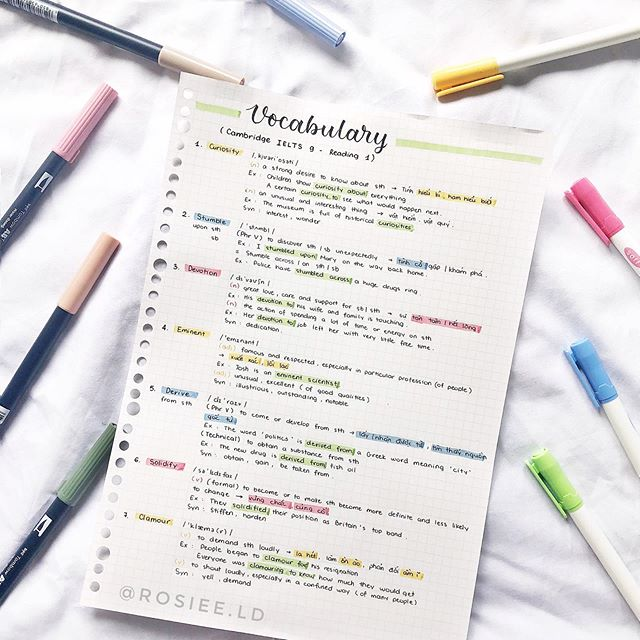 Vocabulary
(Cambridge IELTS 9 - Reading 1)
1. Curiosity
(n) a strong desire to know about sth → Tính hiếu kì, ham hiểu biết
Ex : Children show curiosity about everything
A certain curiosity to see what would happen next.
(n) an unusual and interesting thing → vật hiếm vật quý.
Ex : The museum is full of historical curiosities
Syn : interest, wonder
2. Stumble / 'stʌmbl /
upon sth (Phr V) to discover sth / sb unexpectedly → tình cờ gặp / khám phá.
sb Ex : I stumbled upon Mary on the way back home.
= Stumble across / on sth / sb
Ex : Police have stumbled across a huge drugs ring
3. Devotion
(n) great love, care and support for sb / sth → sự tận tâm / hết lòng
Ex : His devotion to his wife and family is touching
(n) the action of spending a lot of time or energy on sth
Ex : Her devotion to job left her with very little free time.
Syn : dedication
4. Eminent / 'emɪnənt /
(adj) famous and respected, especially in particular profession (of people)
→ xuất sắc, lỗi lạc
Ex : Josh is an eminent scientist
(adj) unusual, excellent (of good qualities)
Syn : illustrious, outstanding, notable
5. Derive
from sth (Phr V) to come or develop from sth → lấy / nhận được từ, tìm thấy nguồn
gốc từ
Ex : The word 'politics' is derived from a Greek word meaning 'city'
(Technical) to obtain a substance from sth
Ex : the new drug is derived from fish oil
Syn : obtain, gain, be taken from
6. Solidify
(v) (formal) to become or to make sth become more definite and less likely
to change → vững chắc, củng cố
Ex : They solidified their position as Britain's top band.
Syn : Stiffen, harden
7. Clamour / 'klæmə(r) /
(v) to demand sth loudly → la hét, làm ồn ào, phản đối ầm ĩ
Ex : People began to clamour for his resignation
Everyone was clamouring to know how much they would get
(v) to shout loudly, especially in a confused way (of many people)
Syn : yell, demand
@ROSIEE.LD